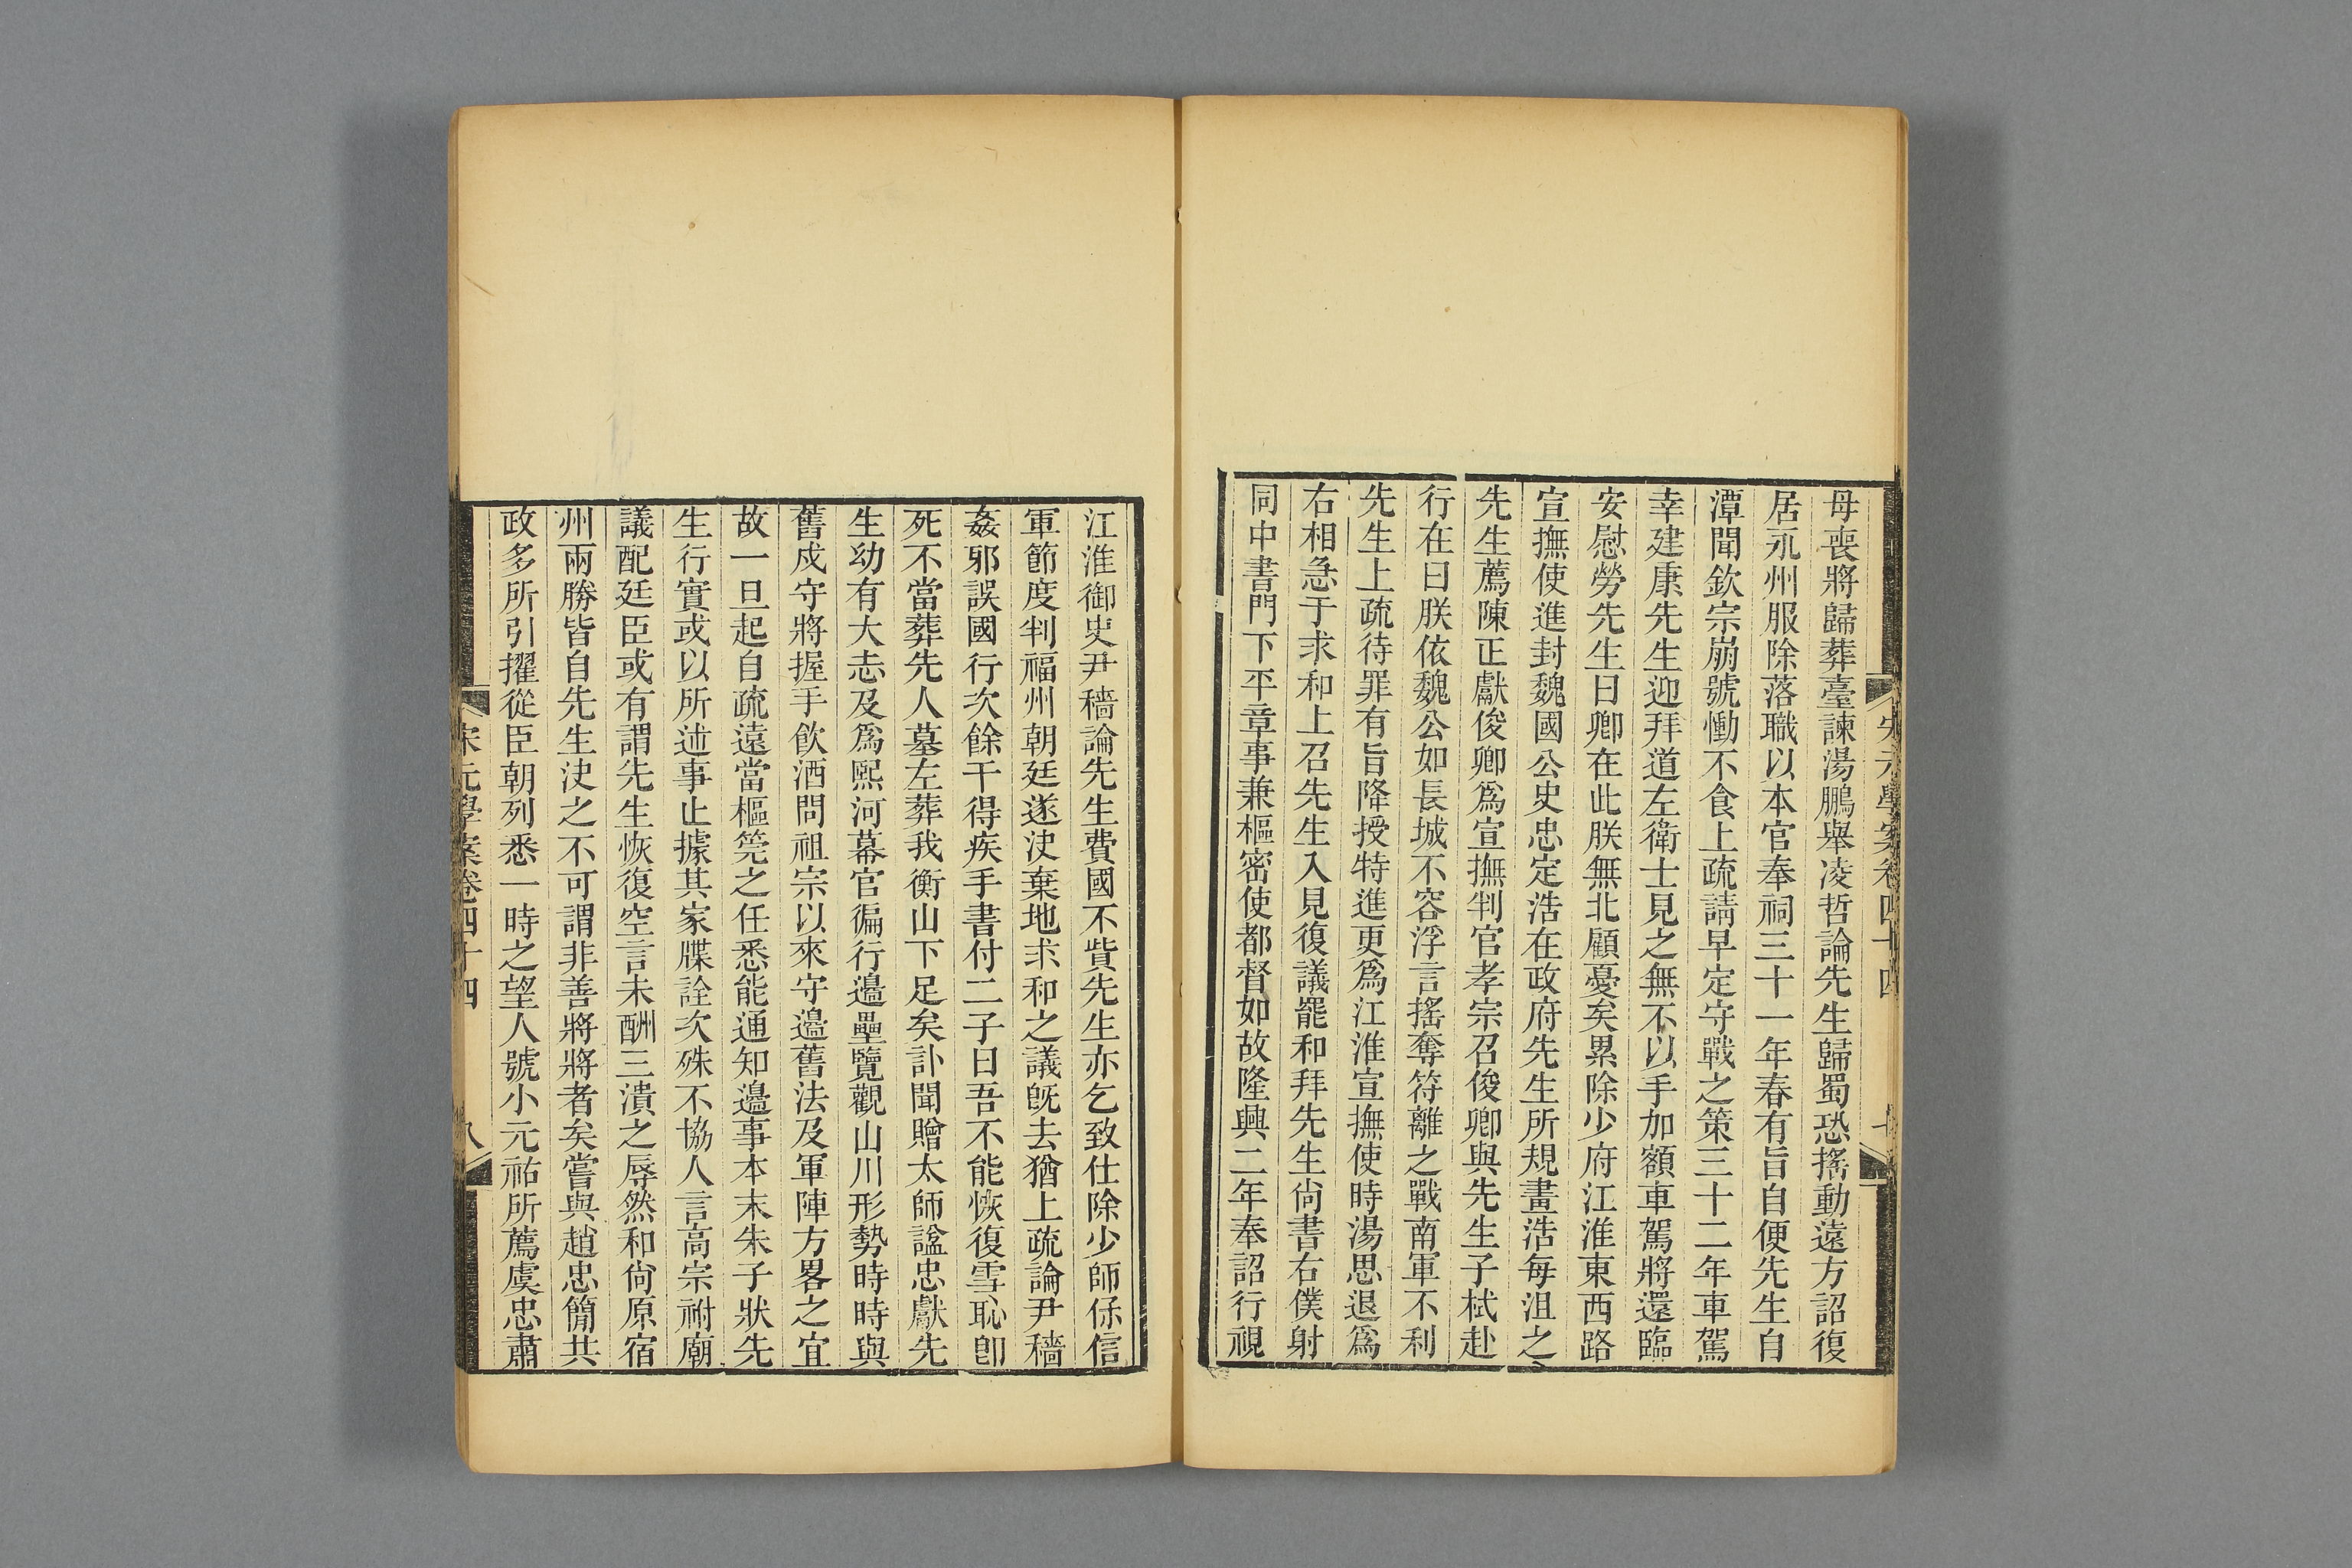 宋元學案卷四十四
七
母喪將歸葬臺諫湯鵬舉凌哲論先生歸蜀恐搖動遠方詔復
居永州服除落職以本官奉祠三十一年春有旨自便先生自
潭聞欽宗崩號慟不食上疏請早定守戰之策三十二年車駕
幸建康先生迎拜道左衞士見之無不以手加額車駕將還臨
安慰勞先生曰卿在此朕無北顧憂矣累除少府江淮東西路
宣撫使進封魏國公史忠定浩在政府先生所規畫浩每沮之
先生薦陳正獻俊卿爲宣撫判官孝宗召俊卿與先生子栻赴
行在曰朕依魏公如長城不容浮言搖奪符離之戰南軍不利
先生上疏待罪有旨降授特進更爲江淮宣撫使時湯思退爲
右相急于求和上召先生入見復議罷和拜先生尙書右僕射
同中書門下平章事兼樞密使都督如故隆興二年奉詔行視
江淮御史尹穡論先生費國不貲先生亦乞致仕除少師保信
軍節度判福州朝廷遂決棄地求和之議旣去猶上疏論尹穡
姦邪誤國行次餘干得疾手書付二子曰吾不能恢復雪恥卽
死不當葬先人墓左葬我衡山下足矣訃聞贈太師諡忠獻先
生幼有大志及爲熙河幕官徧行邊壘覽觀山川形勢時時與
舊戍守將握手飮酒問祖宗以來守邊舊法及軍陣方畧之宜
故一旦起自疏遠當樞筦之任悉能通知邊事本末朱子狀先
生行實或以所述事止據其家牒詮次殊不協人言高宗祔廟
議配廷臣或有謂先生恢復空言未酬三潰之辱然和尙原宿
州兩勝皆自先生決之不可謂非善將將者矣嘗與趙忠簡共
政多所引擢從臣朝列悉一時之望人號小元祐所薦虞忠肅
宋元學案卷四十四
八